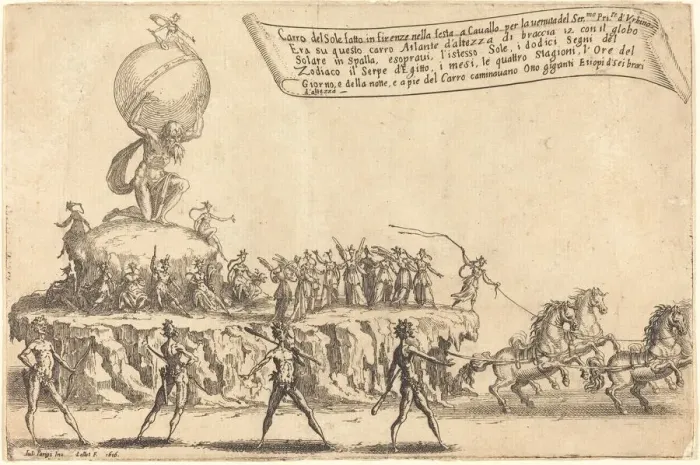 Carro del Sole fatto in firenze nella festa a Cauallo per la uenuta del Ser.mo Pri.pe d'Vrbino
Era su questo carro Atlante d'altezza di braccia 12 con il globo
Solare in Spalla, esoproui, l'istesso Sole, i dodici Segni del
Zodiaco il Serpe d'Egitto, i mesi, le quattro Stagioni, l'Ore del
Giorno, e della notte, e a pie del Carro caminauano Otto giganti Etiopi d'sei bracci
d'altezza
Iul. Parigi Inu. Callot F. 1616.